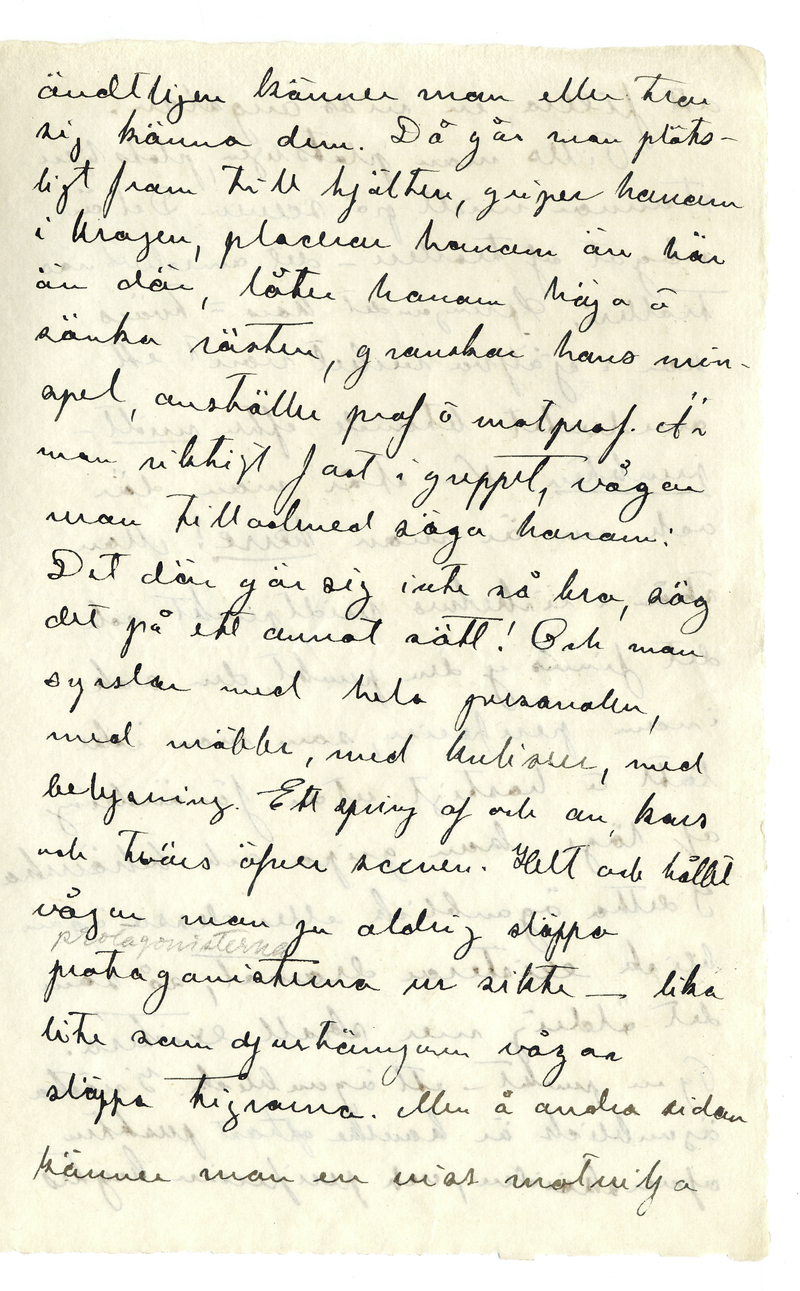 ändtligen känner man eller tror
sig känna dem. Då går man plöts-
ligt fram till hjälten, griper honom
i kragen, placerar honom än här
än där, låter honom höja o
sänka rösten, granskar hans min-
spel, anställer prof o motprof. Är
man riktigt fast i greppet, vågar
man till och med säga honom:
Det där gör sig inte så bra, säg
det på ett annat sätt! Och man
sysslar med hela personalen,
med möbler, med kulisser, med
belysning. Ett spring af och an, kors
och tvärs öfver scenen. Helt och hållet
vågar man ju aldrig släppa
protagonisterna
protagonisterna ur sikte — lika
lite som djurtämjaren vågar
släppa tigrarna. Men å andra sidan
känner man en viss motvilja